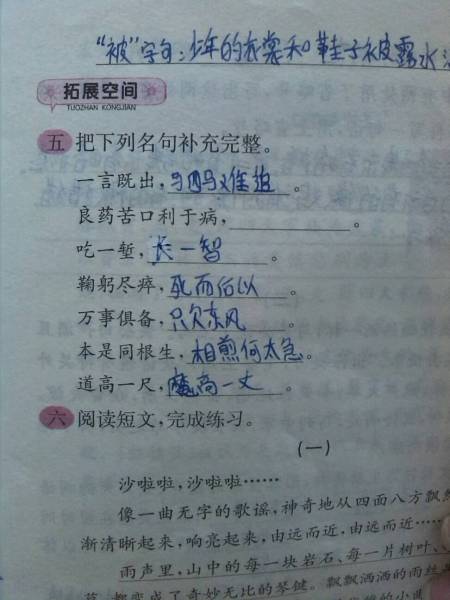 “被”字句：少年的衣裳和鞋子被露水
拓展空间
TUOZHAN KONGJIAN
五 把下列名句补充完整。
一言既出，驷马难追。
良药苦口利于病，。
吃一堑，长一智。
鞠躬尽瘁，死而后以。
万事俱备，只欠东风。
本是同根生，相煎何太急。
道高一尺，魔高一丈。
六 阅读短文，完成练习。
（一）
沙啦啦，沙啦啦……
像一曲无字的歌谣，神奇地从四面八方飘然
渐清晰起来，响亮起来，由远而近，由远而近……
雨声里，山中的每一块岩石、每一片树叶、
都变成了奇妙无比的琴键。飘飘洒洒的雨丝